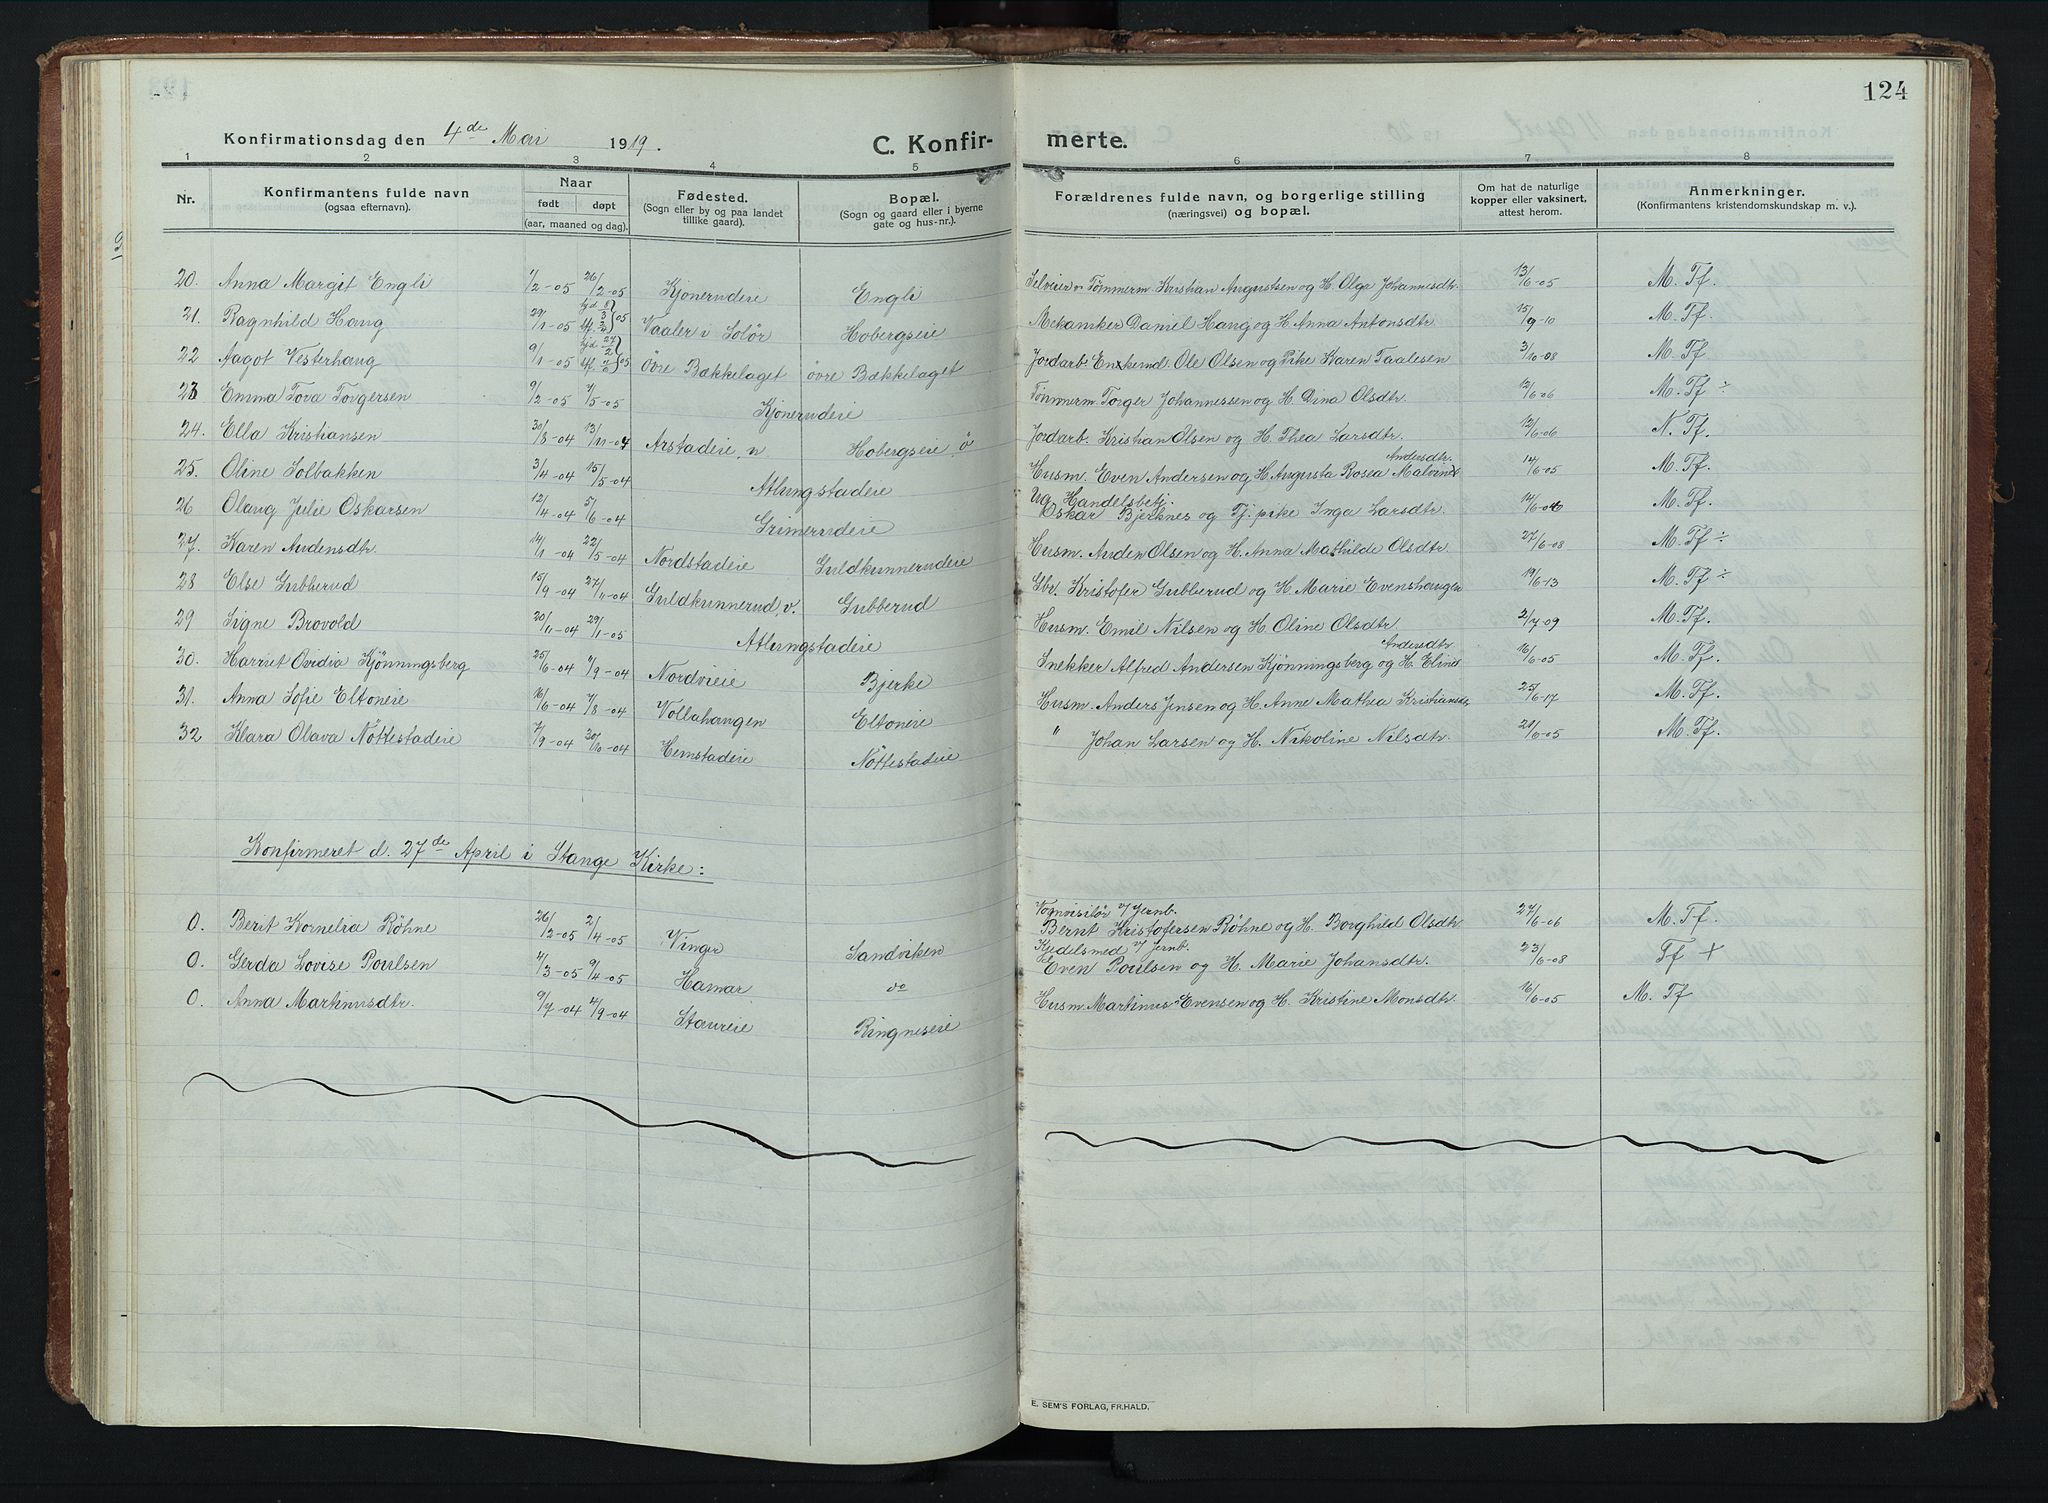 124
Konfirmationsdag den 4de Mai 1919.
C. Konfirmerte.
1 2 3 4 5 6 7 8
Nr. Konfirmantens fulde navn (ogsaa efternavn). Naar født døpt (aar, maaned og dag). Fødested. (Sogn eller by og paa landet tillike gaard). Bopæl. (Sogn og gaard eller i byerne gate og hus-nr.). Forældrenes fulde navn, og borgerlige stilling (næringsvei) og bopæl. Om hat de naturlige kopper eller vaksinert, attest herom. Anmerkninger. (Konfirmantens kristendomskundskap m. v.).
20. Anna Margit Engli 1/2-05 26/2-05 Kjönerudeie Engli Selveier og Tømmerm. Kristian Augustsen og H. Olga Johannesdtr. 13/6-05 M. Tf.
21. Ragnhild Haug 29/1-05 Vaaler i Solör Hobergseie Mekaniker Daniel Haug og H. Anna Antonsdtr. 15/9-10 M. Tf.
22 Aagot Vesterhaug 9/1-05 övre Bækkelaget övre Bækkelaget Jordarb. Enkemd. Ole Olsen og Pike Karen Taalesen 3/10-08 M. Tf.
23 Emma Tova Torgersen 9/2-05 7/5-05 Kjönerudeie Tømmerm. Torger Johannessen og H. Dina Olsdtr. 12/6-06 M. Tf ÷
24. Ella Kristiansen 30/8-04 13/11-04 Arstadeie, n Hobergseie ö Jordarb. Kristian Olsen og H. Thea Larsdtr. 12/6-06 N. Tf.
25. Oline Solbakken 3/4-04 15/5-04 Atlungstadeie Husm. Even Andersen og H. Augusta Rosea Malvine Andersdtr. 14/6-05 M. Tf.
26 Olaug Julie Oskarsen 12/4-04 5/6-04 Grimerudeie Ug. Handelsbetj. Oskar Bjerknes og Tj. pike Inga Larsdtr. M. Tf.
27. Karen Audensdtr. 14/1-04 22/5-04 Nordstadeie Guldkunnerudeie Husm. Auden Olsen og H. Anna Mathilde Olsdtr. 27/6-08 M. Tf ÷
28 Else Gubberud 15/9-04 27/11-04 Guldkunnerud v. Gubberud Gbr. Kristofer Gubberud og H. Marie Evenshaugen 19/6-13 M. Tf ÷
29 Signe Brovold 20/11-04 29/1-05 Atlungstadeie Husm. Emil Nilsen og H. Oline Olsdtr. 2/7-09 M. Tf.
30. Harriet Ovidia Kjönningsberg 25/6-04 Nordvieie Bjerke Snekker Alfred Andersen Kjönningsberg og H. Eline Andersdtr. 16/6-05 M. Tf.
31. Anna Sofie Eltoneie 16/6-04 7/8-04 Vollahaugen Eltoneie Husm. Anders Jensen og H. Anne Mathea Kristiansd. 25/6-17 M. Tf.
32 Klara Olava Nöttestadeie 7/9-04 30/10-04 Hemstadeie Nöttestadeie " Johan Larsen og H. Nikoline Nilsdtr. 21/6-05 M. Tf.
Konfirmeret d. 27de April i Stange Kirke:
0. Berit Kornelia Röhne 26/2-05 2/4-05 Vinger Sandviken Vognvisitör v/ Jernb. Bernt Kristofersen Röhne og H. Borghild Olsdtr. 27/6-06 M. Tf.
0. Gerda Lovise Poulsen 4/3-05 9/4-05 Hamar do Kjedelsmed v/ Jernb. Even Poulsen og H. Marie Johansdtr. 23/6-08 Tf +
0. Anna Martinusdtr. 9/7-04 4/9-04 Staureie Ringneseie Husm. Martinus Evensen og H. Kristine Monsdtr. 16/6-05 M. Tf
E. SEM'S FORLAG, FR.HALD.